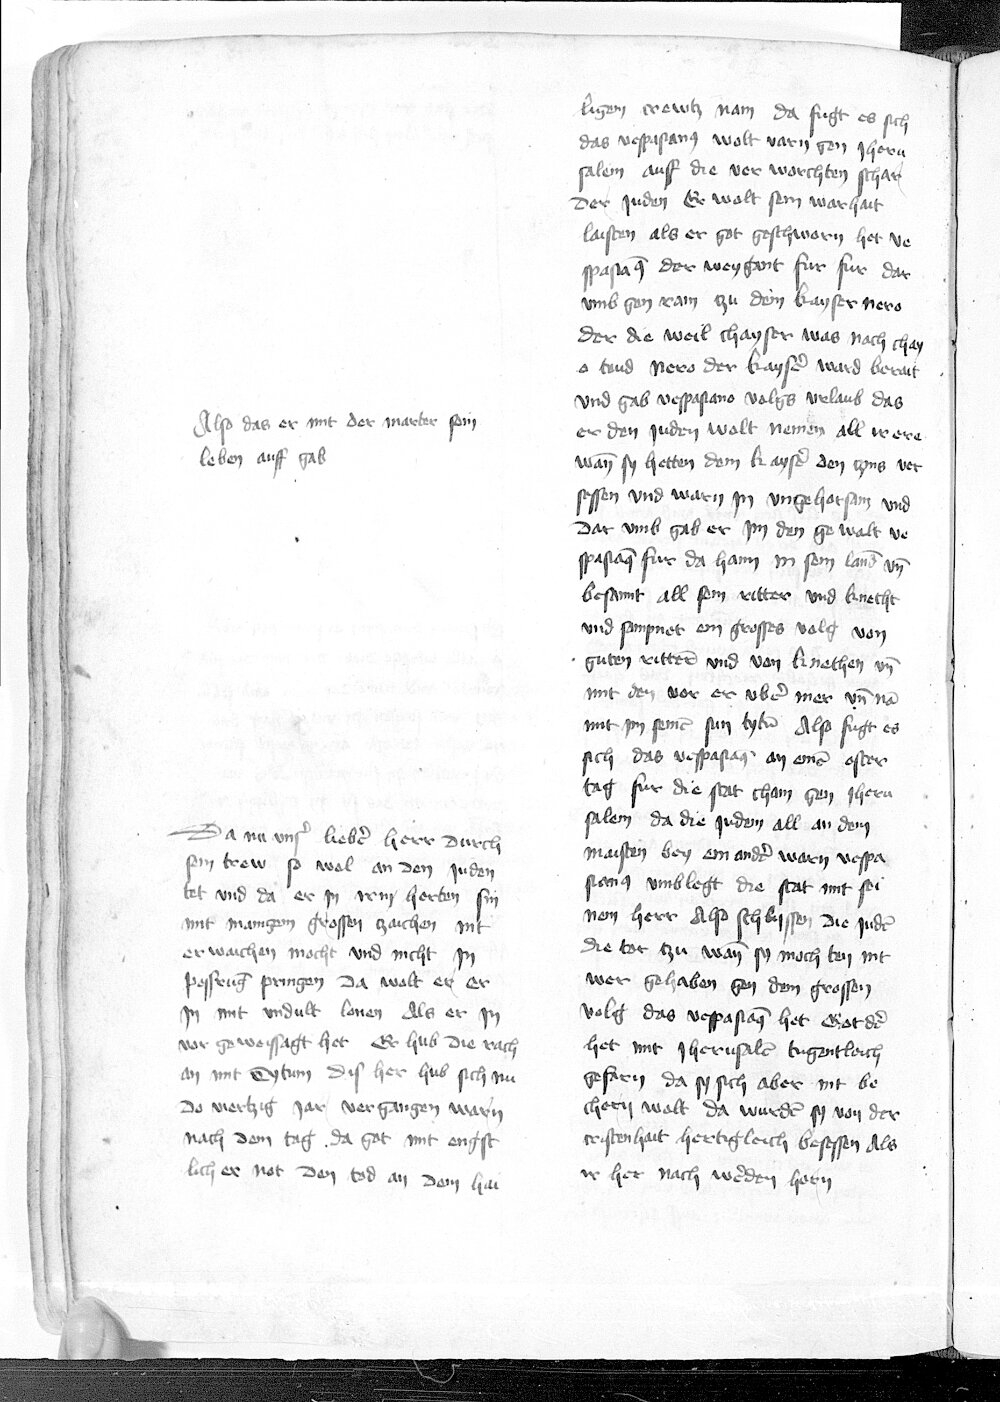 Also das er mit der marter sein
leben auff gab
Da nu unsˀ liebeˀ herr durch
sein trew so wol an den juden
tet vnd da er jn jrm herten sin
mit manigem grossen zaichen nit
erwaichen mocht vnd nicht jn
pessrug̃ pringen Da wolt er er
jn mit vndult lonen Als er jn
vor geweissagt het Er hub die rach
an mit Tytum Dis her hub sich nu
Do viertzig jar vergangen warn
nach dem tag da got mit engst
licher not den tod an dem hai
ligem crewtz nam da fugt es sich
das vespasianꝰ wolt varn gen jheru
salem auff die verworchten schar
Der juden Er wolt sein warhait
laisten als er got geschworn het ve
spasiaꝰ der weygant fur fur dar
vmb gen ram tzu dem kayser nero
der die weil chayser was nach chay
o toud Nero der kayseˀ ward berait
vnd gab vespasiano volgs vrlaub das
er den juden wolt nemen all ir ere
wañ sy hetten dem kayseˀ den tzins ver
sessen vnd warn jn vngehorsam vnd
Dar vmb gab er jm den gewalt ve
spasiaꝰ fur da haim in sein land vñ
besannt all sein ritter vnd knecht
vnd sampnet ein grosses volg von
guten ritterñ vnd von knechen vñ
mit den vor er vbeˀ mer vñ nā
mit jm seinē sun tytū Also fugt es
sich das vespasiaꝰ an einē oster
tag fur die stat cham gen jheru
salem da die juden all an dem
maisten bey ein andeˀ warn vespa
sianꝰ vmblegt die stat mit sei
nem herr Also schlussen die judē
die tor tzu wañ sy mochten nit
wer gehaben gen dem grossen
volg das vespasiaꝰ het Got deˀ
het mit jherusalē tugentleich
gefarn da sy sich aber nit be
chern wolt da wurdē sy von der
cristenhait hertigleich besessen Als
ir her nach werden horn